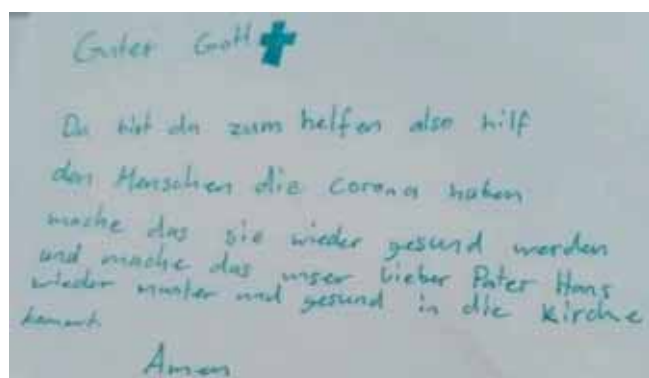 Guter Gott
Du bist da zum helfen also hilf
den Menschen die Corona haben
mache das sie wieder gesund werden
und mache das unser lieber Pater Hans
wieder munter und gesund in die Kirche
kommt
Amen